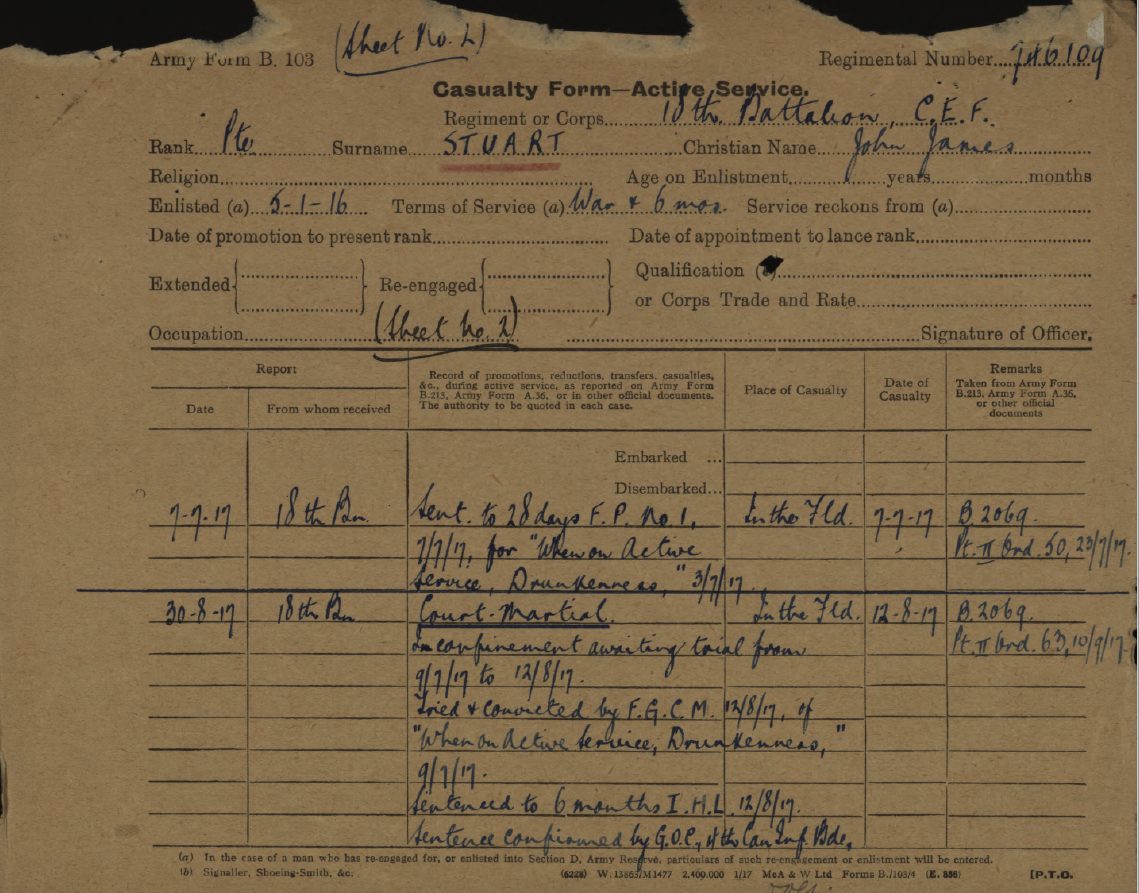 (Sheet No. 2)
Army Form B. 103
Regimental Number 746109
Casualty Form—Active Service.
Regiment or Corps 18th Battalion, C.E.F.
Rank Pte Surname STUART Christian Name John James
Religion Age on Enlistment years months
Enlisted (a) 5-1-16 Terms of Service (a) War & 6 mos. Service reckons from (a)
Date of promotion to present rank Date of appointment to lance rank
Extended Re-engaged Qualification (b)
or Corps Trade and Rate
Occupation (Sheet No. 2) Signature of Officer.
Report
Date
From whom received
Record of promotions, reductions, transfers, casualties,
&c., during active service, as reported on Army Form
B.213, Army Form A.36, or in other official documents.
The authority to be quoted in each case.
Place of Casualty
Date of
Casualty
Remarks
Taken from Army Form
B.213, Army Form A.36,
or other official
documents
Embarked ...
Disembarked...
7-7-17 18th Bn. Sent. to 28 days F.P. No. 1, In the Fld. 7-7-17 B.2069.
7/7/17, for "When on Active Pt. II Ord. 50, 23/7/17.
Service, Drunkenness," 3/7/17.
30-8-17 18th Bn Court-Martial. In the Fld. 12-8-17 B.2069.
In confinement awaiting trial from Pt. II Ord. 63, 10/9/17.
9/7/17 to 12/8/17.
Tried & convicted by F.G.C.M. 12/8/17, of
"When on Active Service, Drunkenness,"
9/7/17.
Sentenced to 6 months I.H.L. 12/8/17.
Sentence confirmed by G.O.C., 4th Can Inf. Bde,
(a) In the case of a man who has re-engaged for, or enlisted into Section D, Army Reserve, particulars of such re-engagement or enlistment will be entered.
(b) Signaller, Shoeing-Smith, &c. (6228) W. 13863/M1477 2,400,000 1/17 McA & W Ltd Forms B./103/4 (E. 836) [P.T.O.